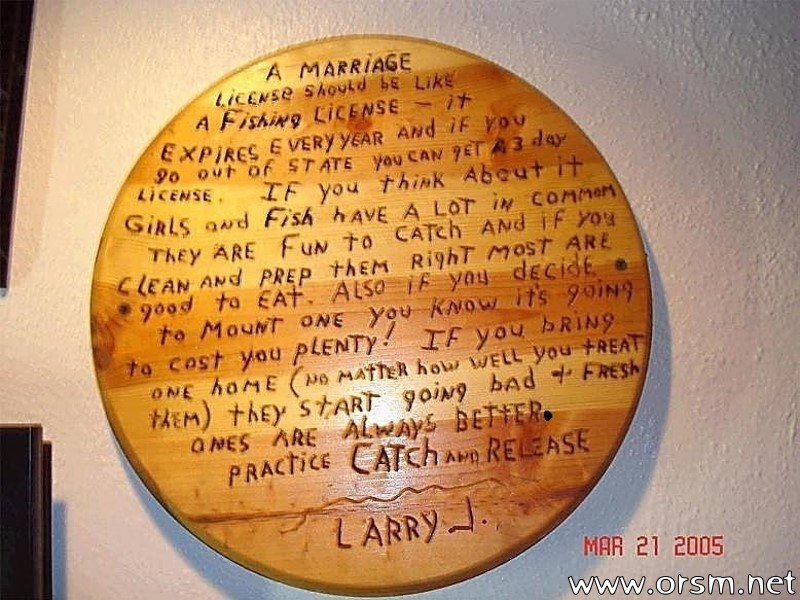 A MARRIAGE
LICENSE Should bE LIKE
A Fishing LICENSE – it
EXPIRES EVERY YEAR AND if YOU
go out OF STATE YOU CAN gET A 3 day
LICENSE. IF you think About it
GIRLS and Fish hAVE A LOT IN COMMOM
THEY ARE FUN to CATCH AND if YOU
CLEAN AND PREP thEM Right MOST ARE
good to EAT. ALSO if you dECIDE
to MOUNT ONE YOU KNOW it's going
to COST YOU PLENTY! IF YOU bRING
ONE hOME (NO MATTER how WELL YOU tREAT
thEM) thEY START going bAd + FRESH
ONES ARE ALWAYS BETTER.
PRACTICE CATCh AND RELEASE
LARRY J.
MAR 21 2005
www.orsm.net